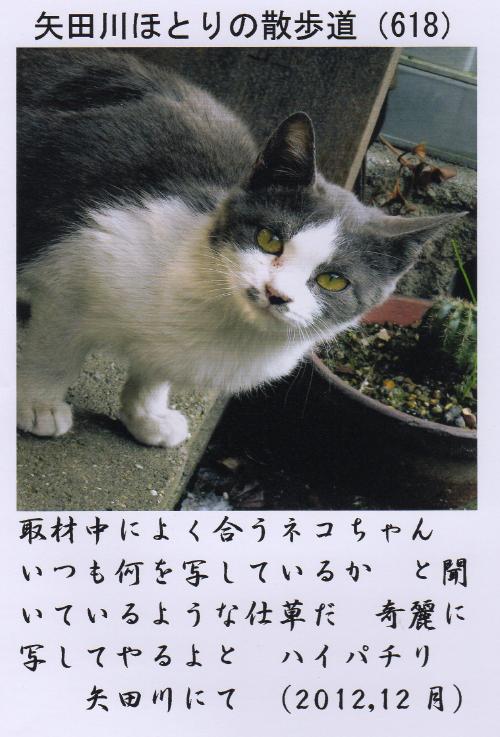 矢田川ほとりの散歩道（618）
取材中によく合うネコちゃん
いつも何を写しているか　と聞
いているような仕草だ　奇麗に
写してやるよと　ハイパチリ
矢田川にて　（2012,12月）